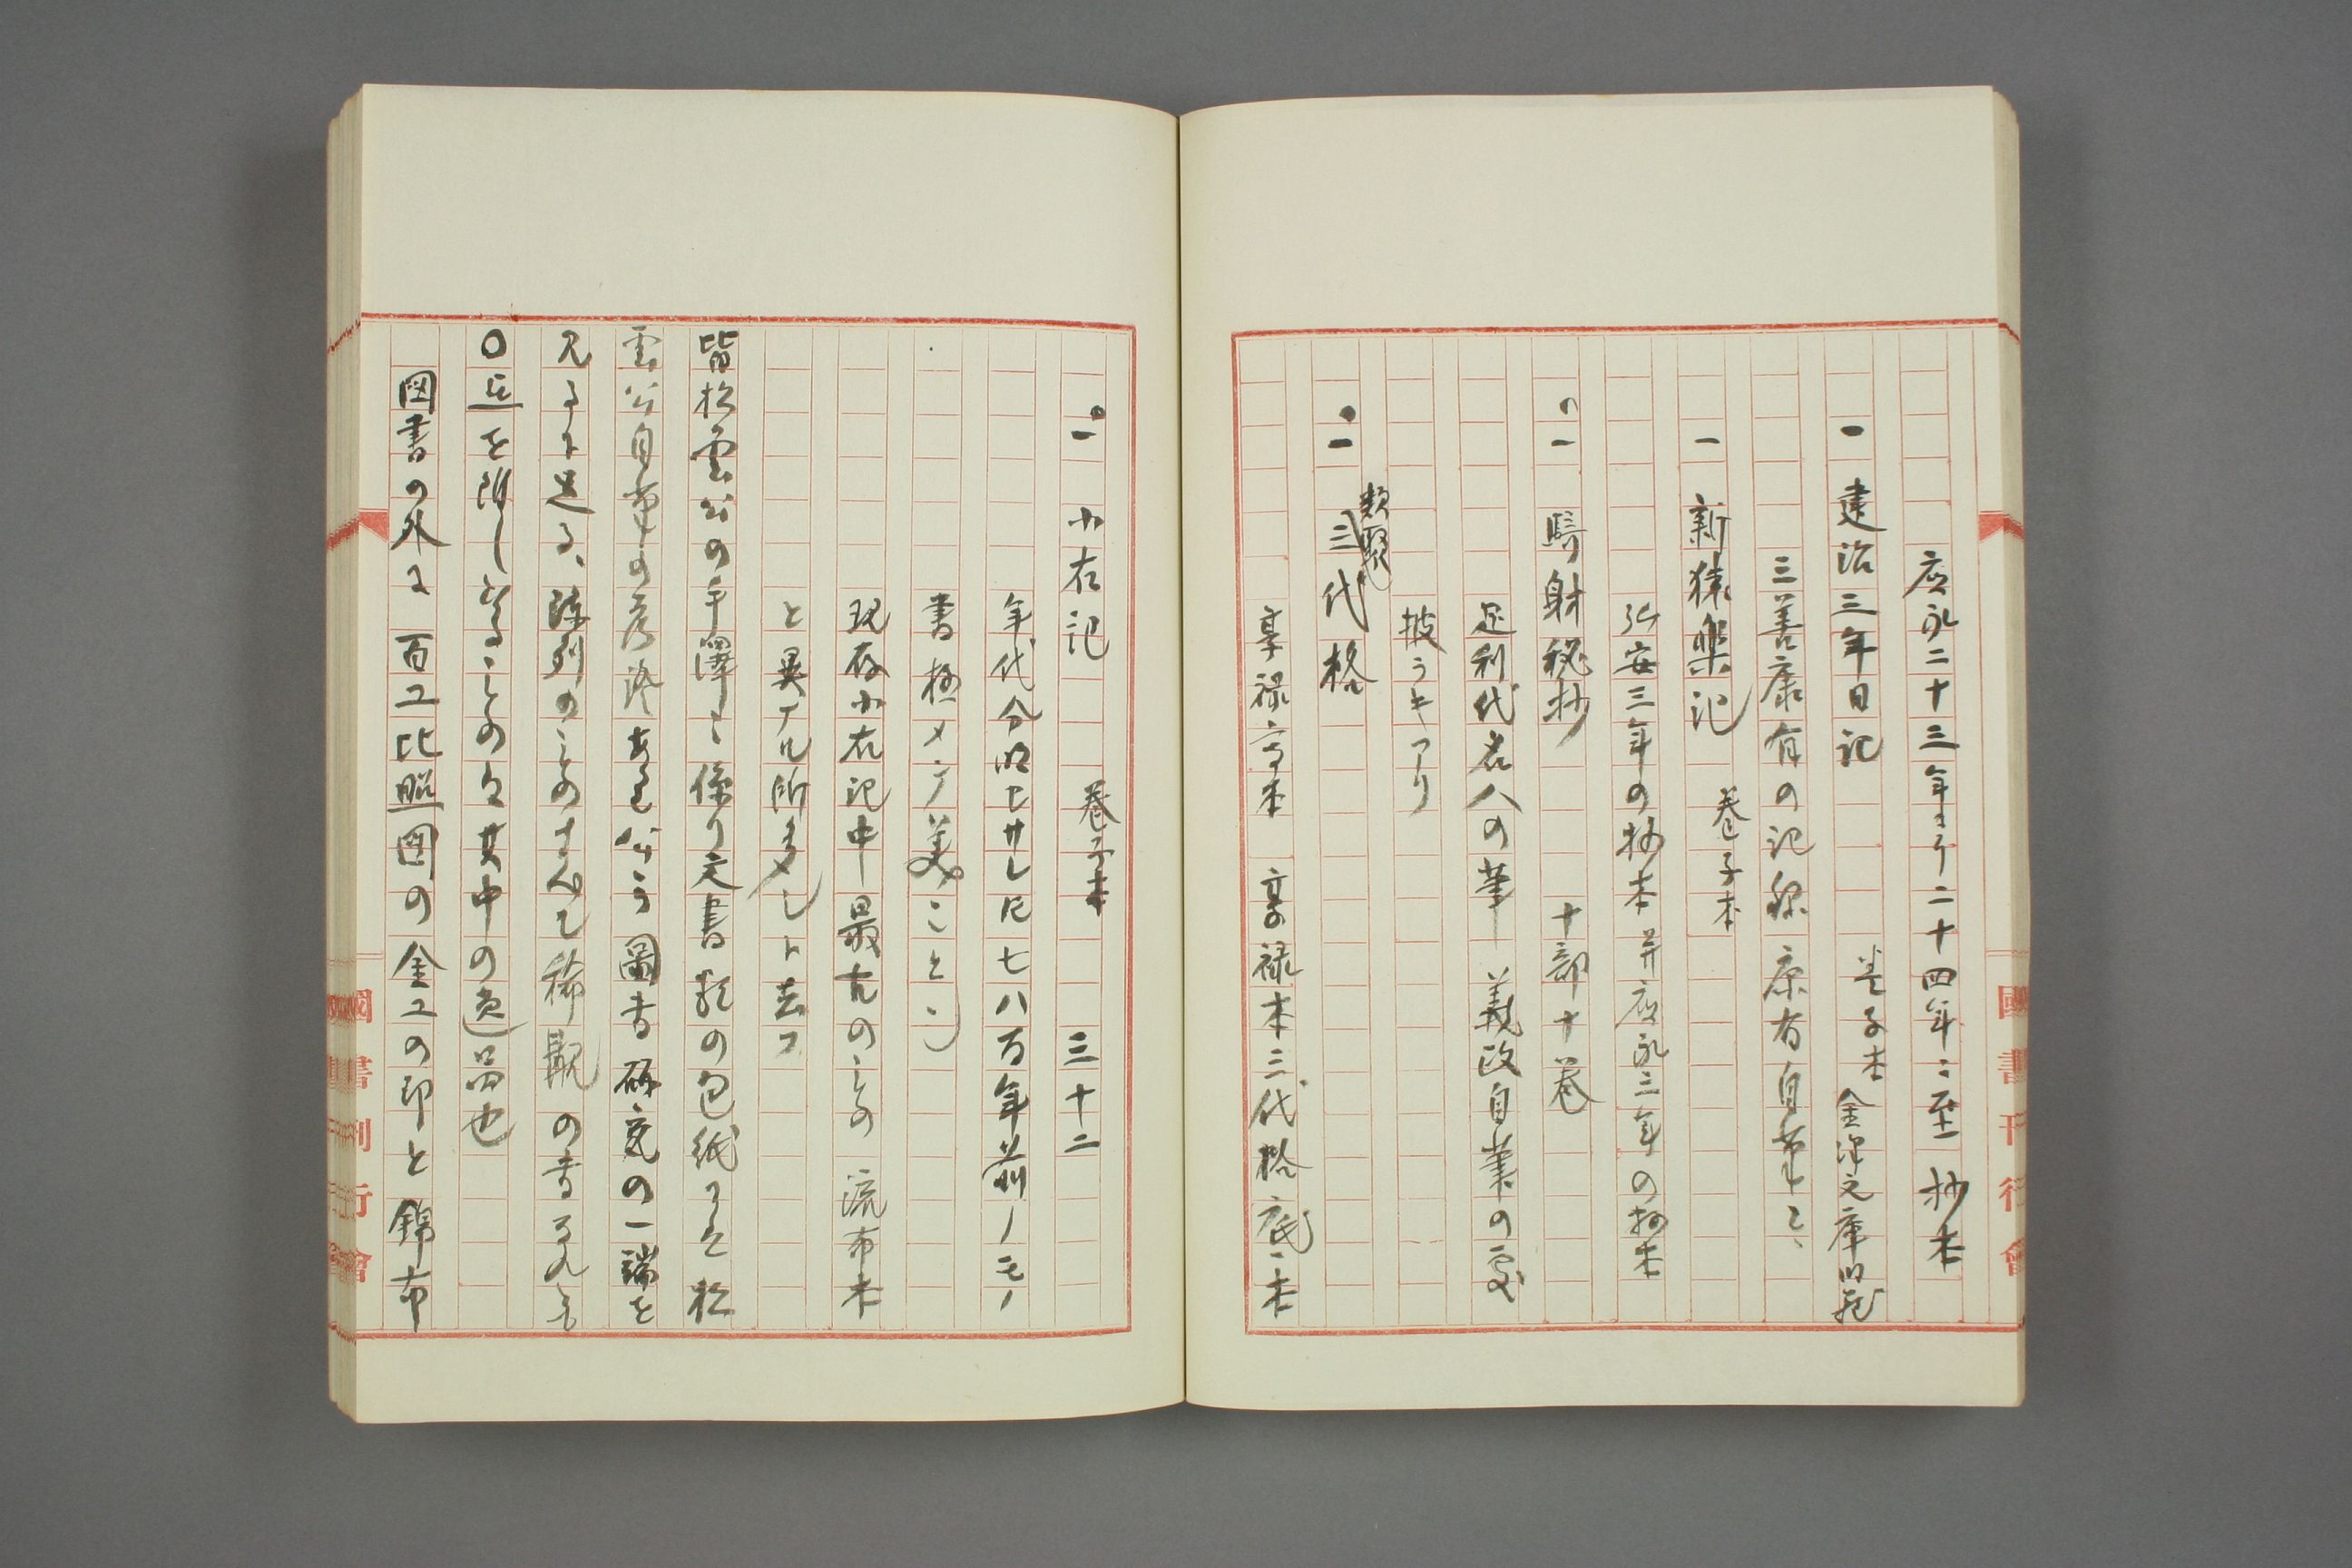 應永二十三年ヨリ二十四年ニ至 抄本
一 建治三年日記 巻子本 金沢文庫旧蔵
三善康有の記録 康有自筆
一 新猿楽記 巻子本
弘安三年の抄本 并應永三年の抄本
一 騎射秘抄 十部十巻
足利代名人の筆 義政自筆の
披ラキアリ
一 類聚三代格
享禄高本 享禄本三代格底本
一 小右記 巻子本 三十二
年代分明セサレ𪜈七八百年前ノモノ
書極メテ美
現存小右記中最古のもの 流布本
と異ナル所多シト云フ
皆松雲公の手澤に係り文書類の包紙とて松
雲公自筆の ある 公 圖書研究の一端を
見るに足る、陳列のもの すべて稀覯の書ならん
を陳し ものハ其中の逸品也
図書の外に 百工比照図の金工の印と錦布
國書刊行會
國書刊行會